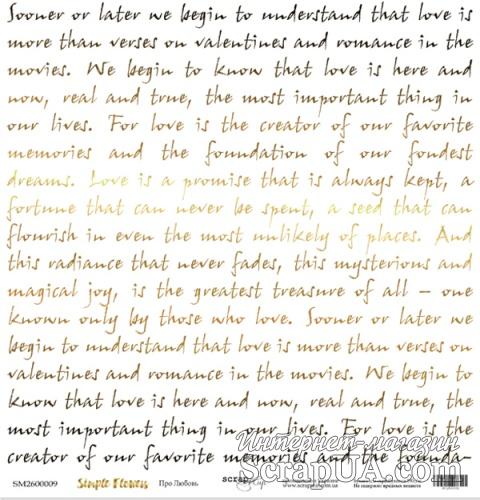 Sooner or later we begin to understand that love is
more than verses on valentines and romance in the
movies. We begin to know that love is here and
now, real and true, the most important thing in
our lives. For love is the creator of our favorite
memories and the foundation of our fondest
dreams. Love is a promise that is always kept, a
fortune that can never be spent, a seed that can
flourish in even the most unlikely of places. And
this radiance that never fades, this mysterious and
magical joy, is the greatest treasure of all – one
known only by those who love. Sooner or later we
begin to understand that love is more than verses on
valentines and romance in the movies. We begin to
know that love is here and now, real and true, the
most important thing in our lives. For love is the
creator of our favorite memories and the founda-
Интернет-магазин
ScrapUA.com
SM2600009 Simple Flowers Про Любовь scrap